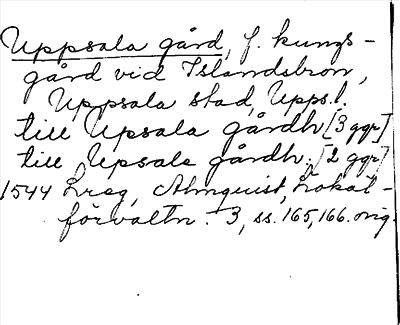 Uppsala gård, f. kungs-
gård vid Islandsbron,
Uppsala stad, Upps. l.
till Upsala gårdh [3 ggr]
till Upsala gårdh. [2 ggr]
1544 Lreg, Almquist, Lokal-
förvaltn. 3, ss. 165, 166. orig.